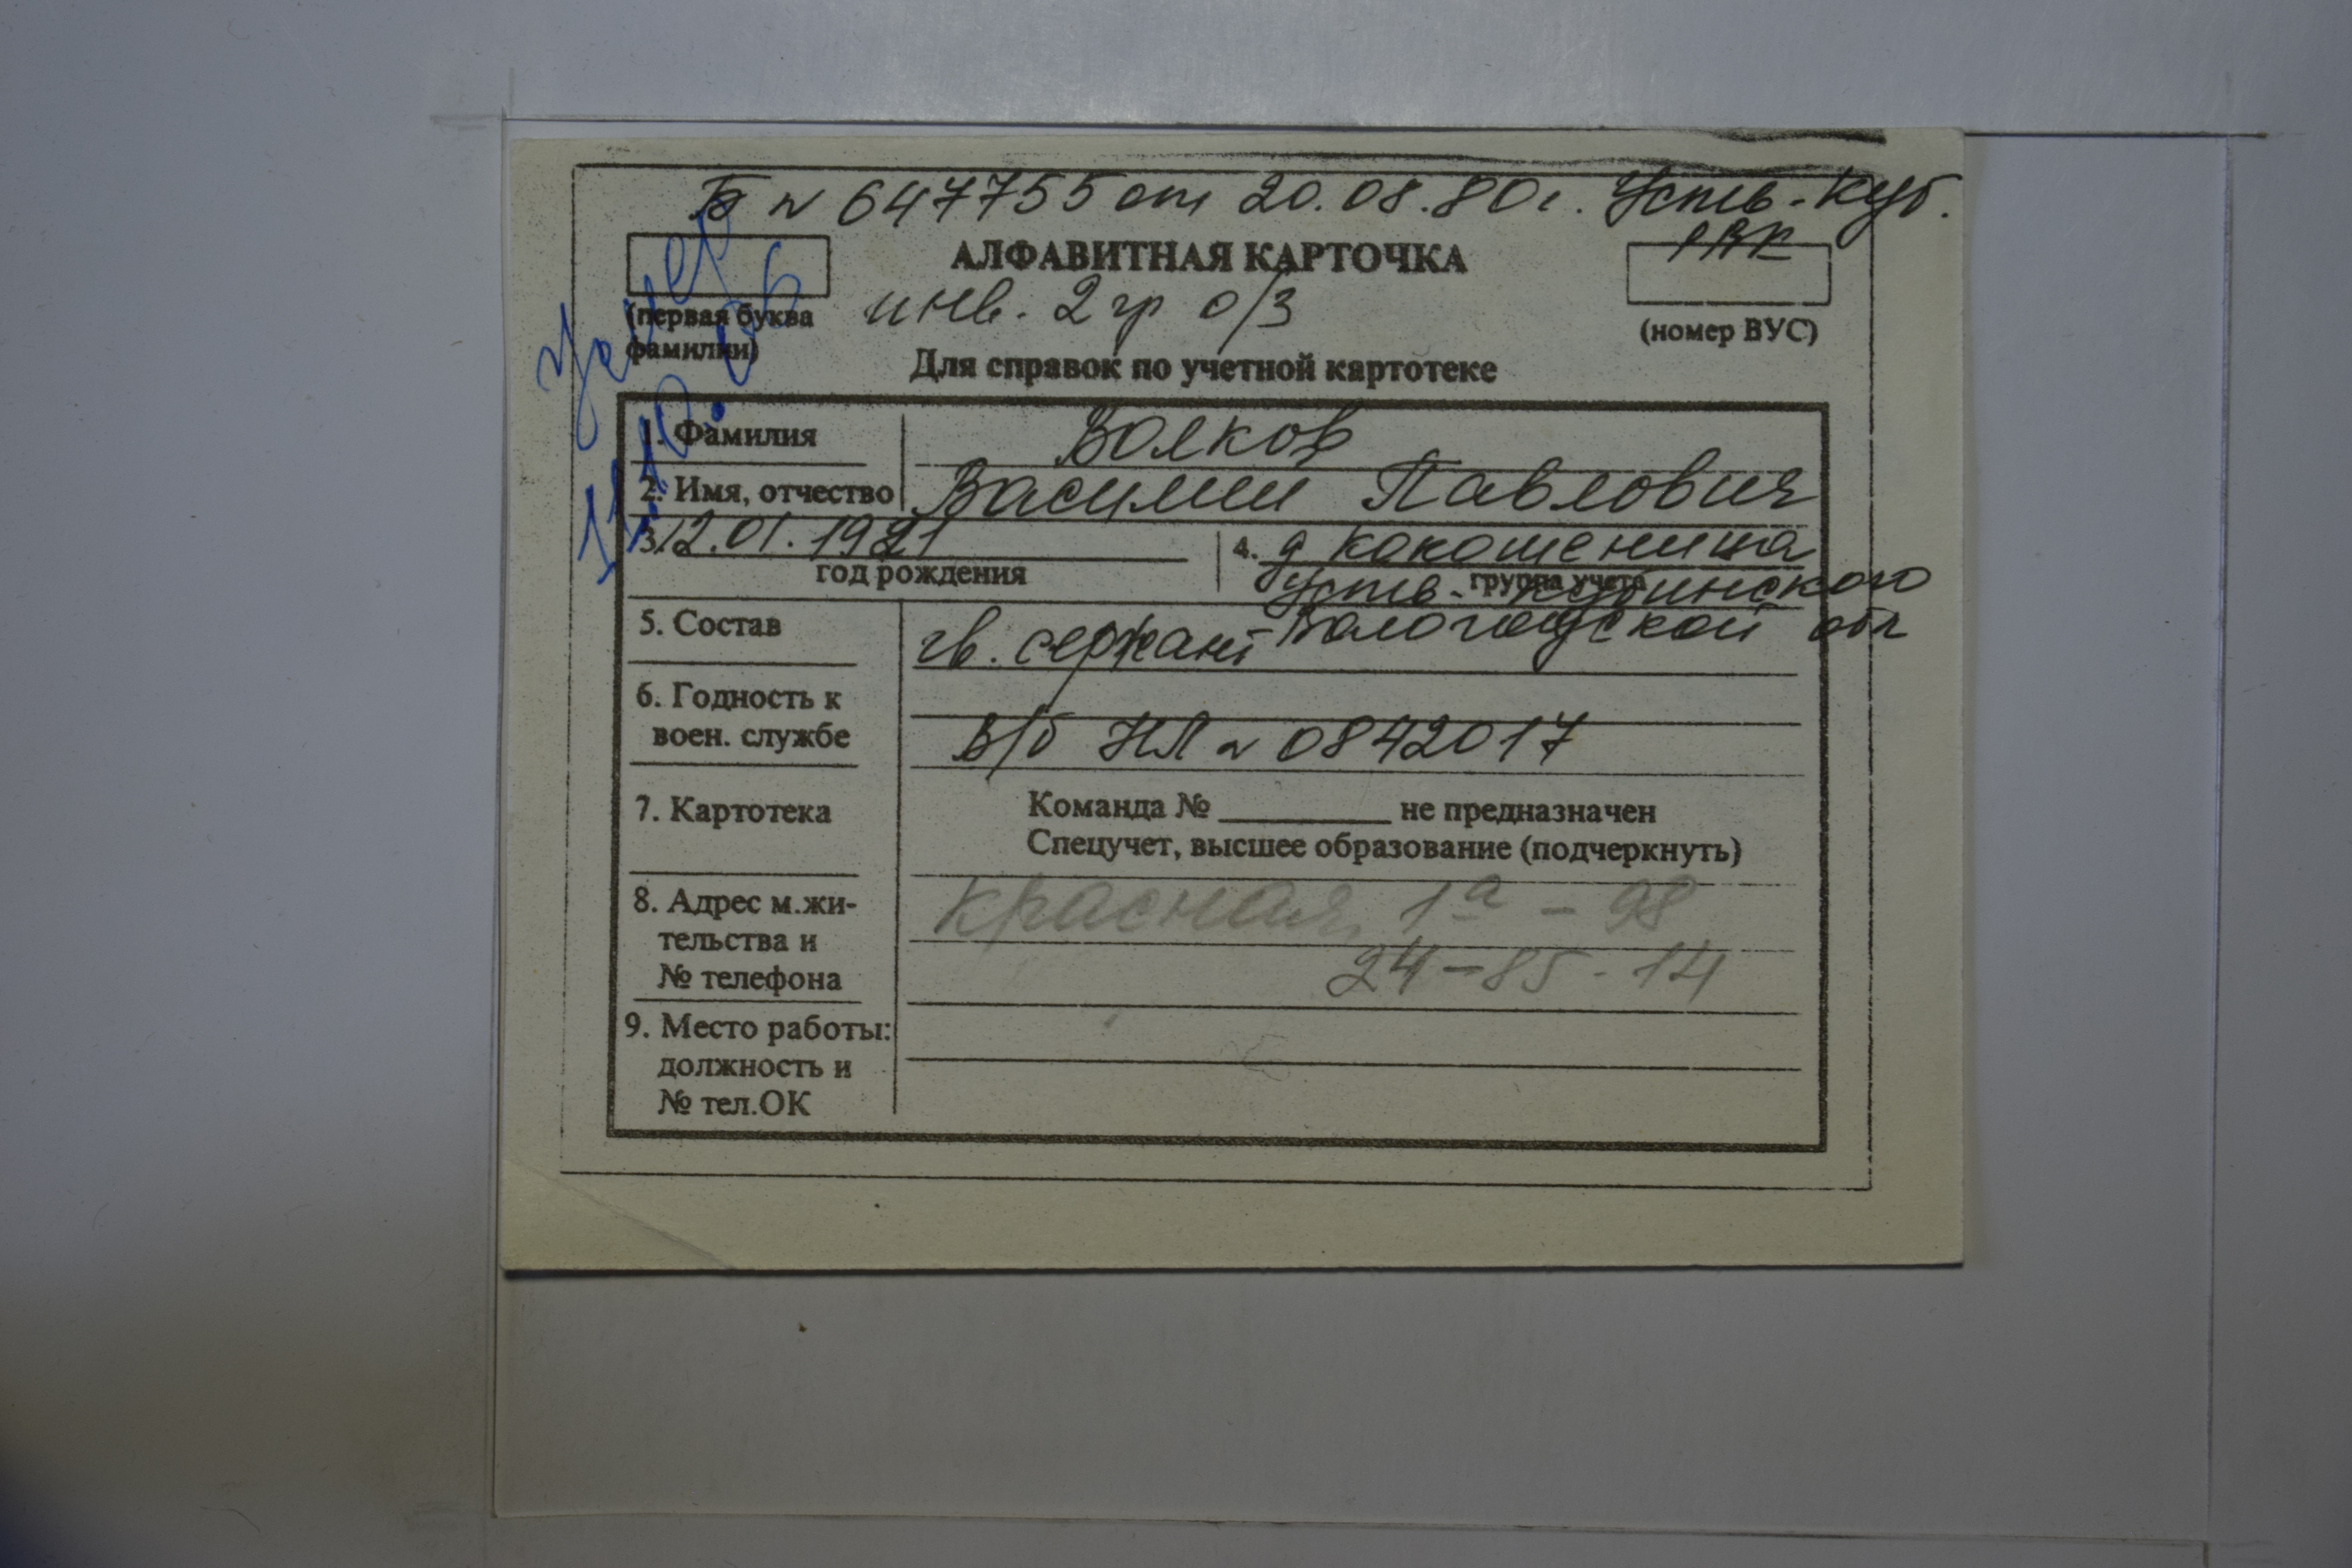 Б № 647755 от 20.08.80г. Усть-Куб.
РВК
АЛФАВИТНАЯ КАРТОЧКА
инв. 2 гр о/з
(первая буква
фамилии)
(номер ВУС)
Для справок по учетной картотеке
Умер
11.10.06
1. Фамилия Волков
2. Имя, отчество Василии Павлович
3. 12.01.1921
год рождения
4. д Кокошеница
группа учета
Усть-Кубинского
Вологодской обл
5. Состав гв. сержант
6. Годность к
воен. службе
в/б НЛ № 0842017
7. Картотека
Команда № не предназначен
Спецучет, высшее образование (подчеркнуть)
8. Адрес м.жи-
тельства и
№ телефона
Красная, 1а - 98
24-85-14
9. Место работы:
должность и
№ тел.ОК